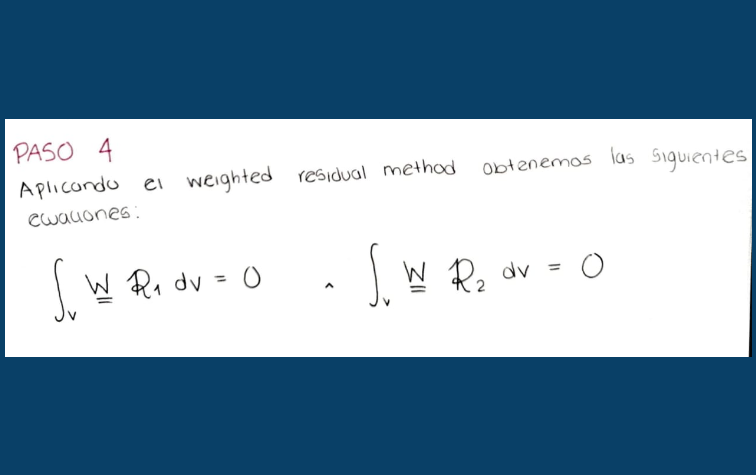 PASO 4
Aplicando el weighted residual method obtenemos las siguientes
ecuaciones:
∫ᵥ W̳ R₁ dv = 0 ^ ∫ᵥ W̳ R₂ dv = 0